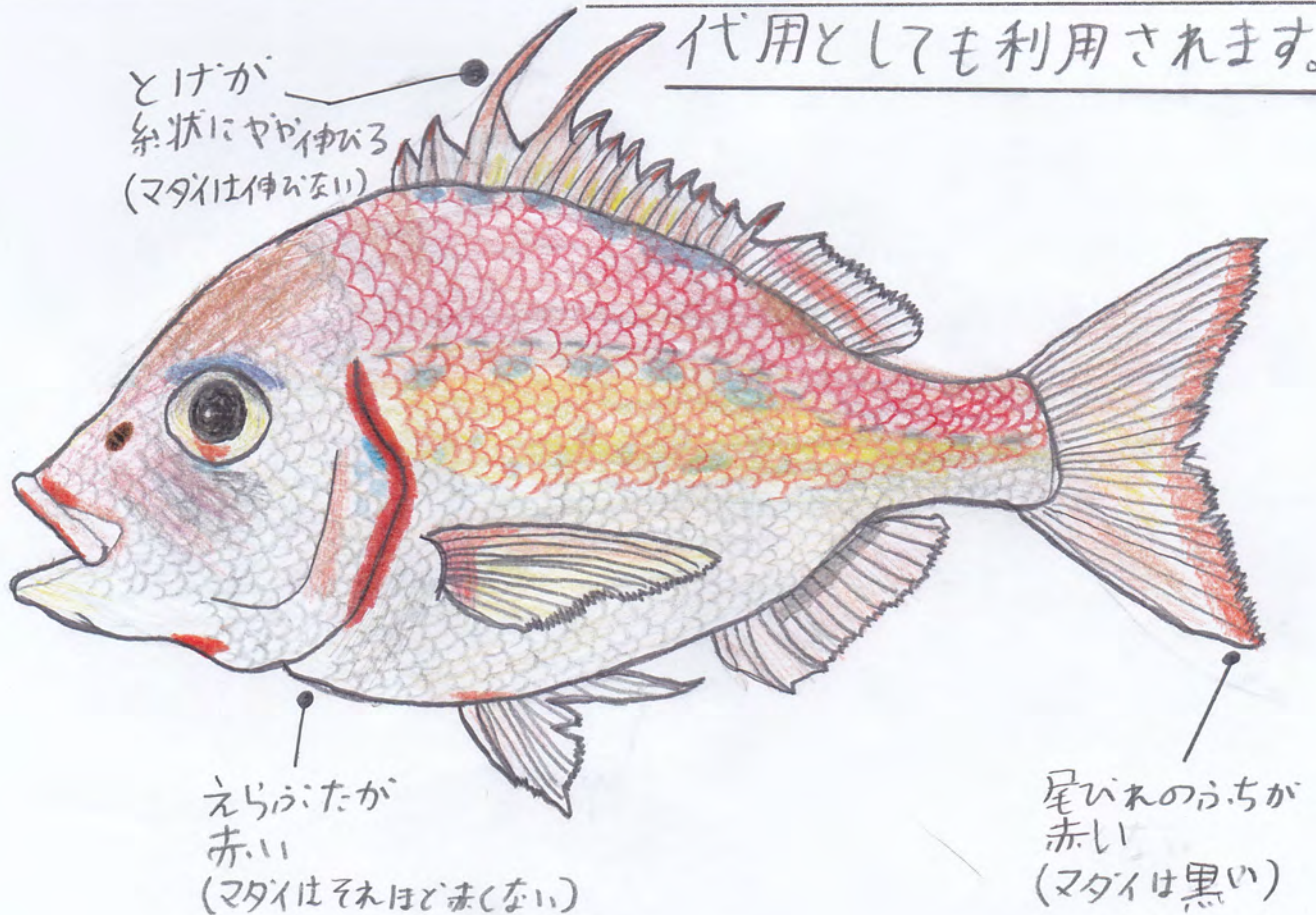 代用としても利用されます。
とげが
糸状にやや伸びる
(マダイは伸びない)
えらぶたが
赤い
(マダイはそれほど赤くない)
尾びれのふちが
赤い
(マダイは黒い)